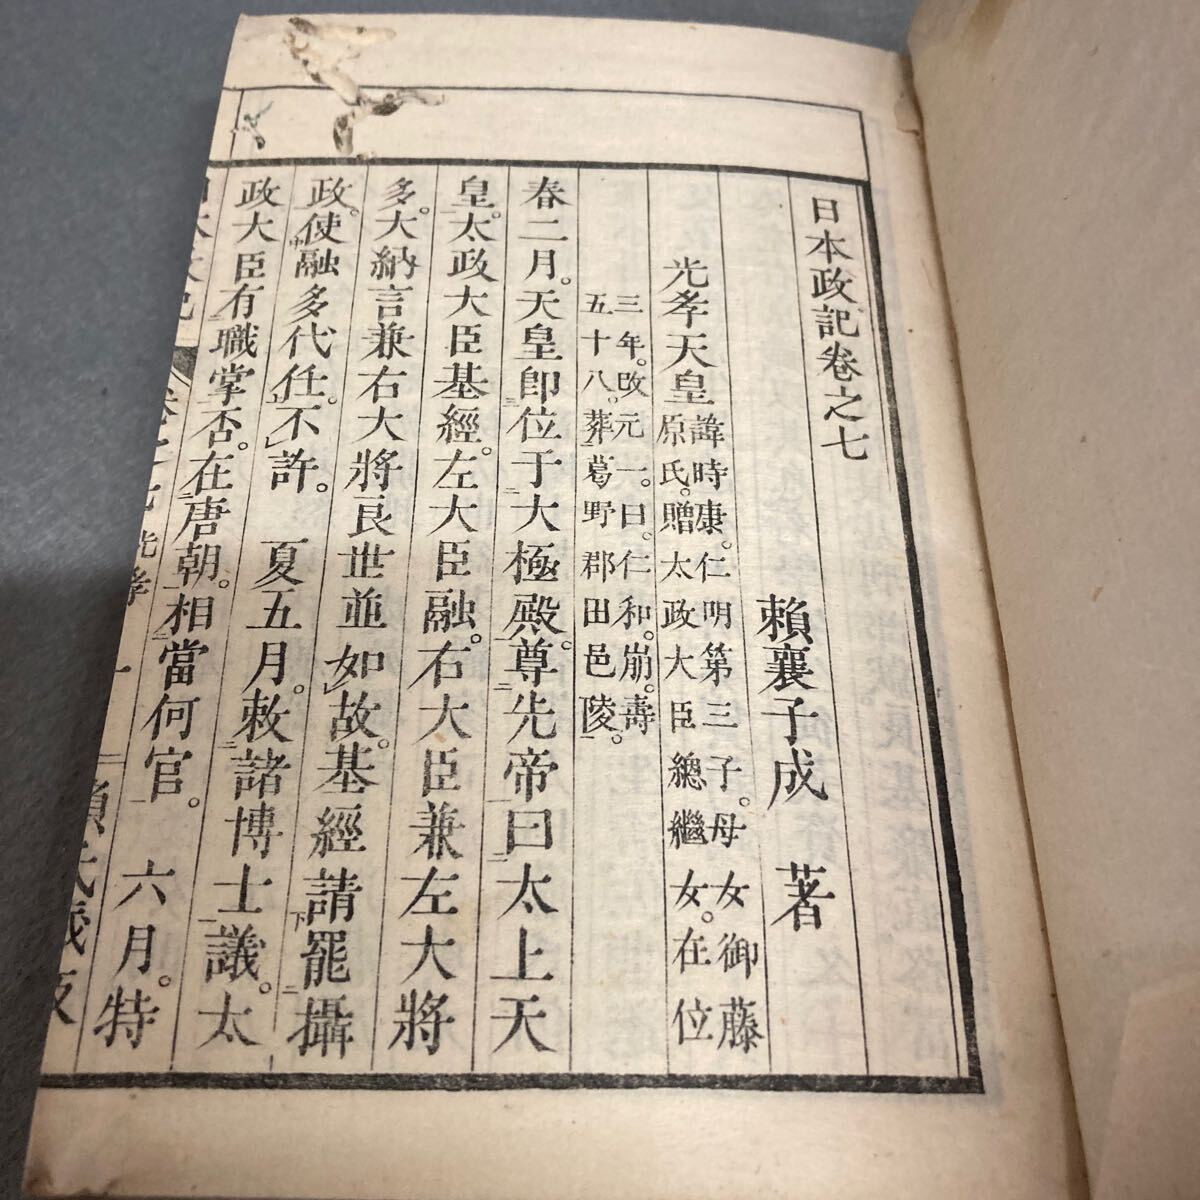 日本政記卷之七
賴襄子成　著
光孝天皇
諱時康。仁明第三子。母女御藤
原氏。贈太政大臣總繼女。在位
三年。改元一。曰仁和。崩。壽
五十八。葬葛野郡田邑陵。
春二月。天皇卽位于大極殿。尊先帝曰太上天
皇。太政大臣基經。左大臣融。右大臣兼左大將
多。大納言兼右大將良世並如故。基經請罷攝
政。使融多代任。不許。　夏五月。敕諸博士議。太
政大臣有職掌否。在唐朝。相當何官。　六月。特
卷之七　光孝　一